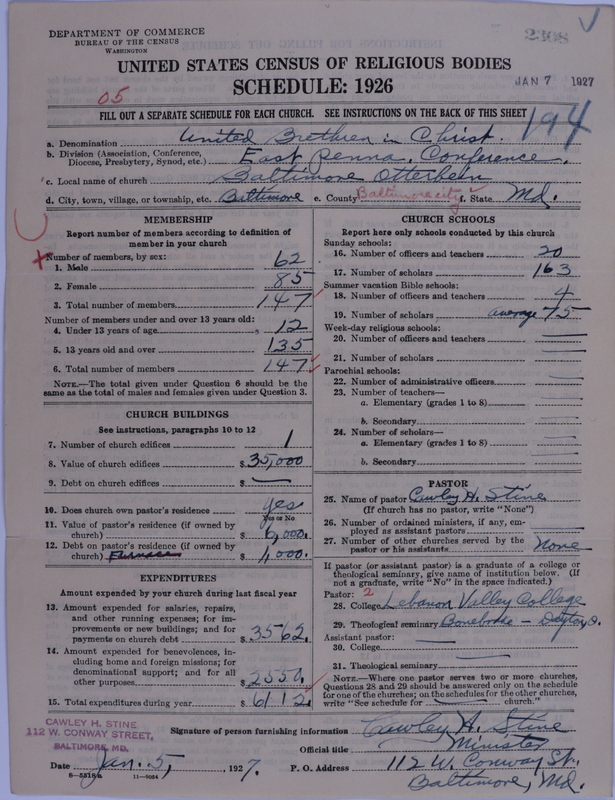 DEPARTMENT OF COMMERCE
BUREAU OF THE CENSUS
WASHINGTON
2308
UNITED STATES CENSUS OF RELIGIOUS BODIES
SCHEDULE: 1926
JAN 7 1927
05
FILL OUT A SEPARATE SCHEDULE FOR EACH CHURCH. SEE INSTRUCTIONS ON THE BACK OF THIS SHEET
194
a. Denomination United Brethren in Christ.
b. Division (Association, Conference, Diocese, Presbytery, Synod, etc.) East Penna. Conference.
c. Local name of church Baltimore Otterbein
d. City, town, village, or township, etc. Baltimore e. County Baltimore city f. State Md.
MEMBERSHIP
Report number of members according to definition of
member in your church
Number of members, by sex:
1. Male 62
2. Female 85
3. Total number of members 147
Number of members under and over 13 years old:
4. Under 13 years of age 12
5. 13 years old and over 135
6. Total number of members 147
NOTE.—The total given under Question 6 should be the
same as the total of males and females given under Question 3.
CHURCH BUILDINGS
See instructions, paragraphs 10 to 12
7. Number of church edifices 1
8. Value of church edifices $ 35,000
9. Debt on church edifices $ —
10. Does church own pastor's residence yes
Yes or No
11. Value of pastor's residence (if owned by
church) $ 6,000.
12. Debt on pastor's residence (if owned by
church) Furnace $ 1,000.
EXPENDITURES
Amount expended by your church during last fiscal year
13. Amount expended for salaries, repairs,
and other running expenses; for im-
provements or new buildings; and for
payments on church debt $ 3562.
14. Amount expended for benevolences, in-
cluding home and foreign missions; for
denominational support; and for all
other purposes $ 2550
15. Total expenditures during year $ 6112.
CHURCH SCHOOLS
Report here only schools conducted by this church
Sunday schools:
16. Number of officers and teachers 20
17. Number of scholars 163
Summer vacation Bible schools:
18. Number of officers and teachers 4
19. Number of scholars average 75
Week-day religious schools:
20. Number of officers and teachers —
21. Number of scholars —
Parochial schools:
22. Number of administrative officers —
23. Number of teachers—
a. Elementary (grades 1 to 8) —
b. Secondary —
24. Number of scholars—
a. Elementary (grades 1 to 8) —
b. Secondary —
PASTOR
25. Name of pastor Cawley H. Stine
(If church has no pastor, write "None")
26. Number of ordained ministers, if any, em-
ployed as assistant pastors —
27. Number of other churches served by the
pastor or his assistants None
If pastor (or assistant pastor) is a graduate of a college or
theological seminary, give name of institution below. (If
not a graduate, write "No" in the space indicated.)
Pastor: 2
28. College Lebanon Valley College
29. Theological seminary Bonebrake – Dayton O.
Assistant pastor:
30. College —
31. Theological seminary —
NOTE.—Where one pastor serves two or more churches,
Questions 28 and 29 should be answered only on the schedule
for one of the churches; on the schedules for the other churches,
write "See schedule for — church."
CAWLEY H. STINE
112 W. CONWAY STREET,
BALTIMORE, MD.
Signature of person furnishing information Cawley H. Stine
Official title Minister
Date Jan. 5, 1927. P. O. Address 112 W. Conway St.
Baltimore, Md.
11—9084